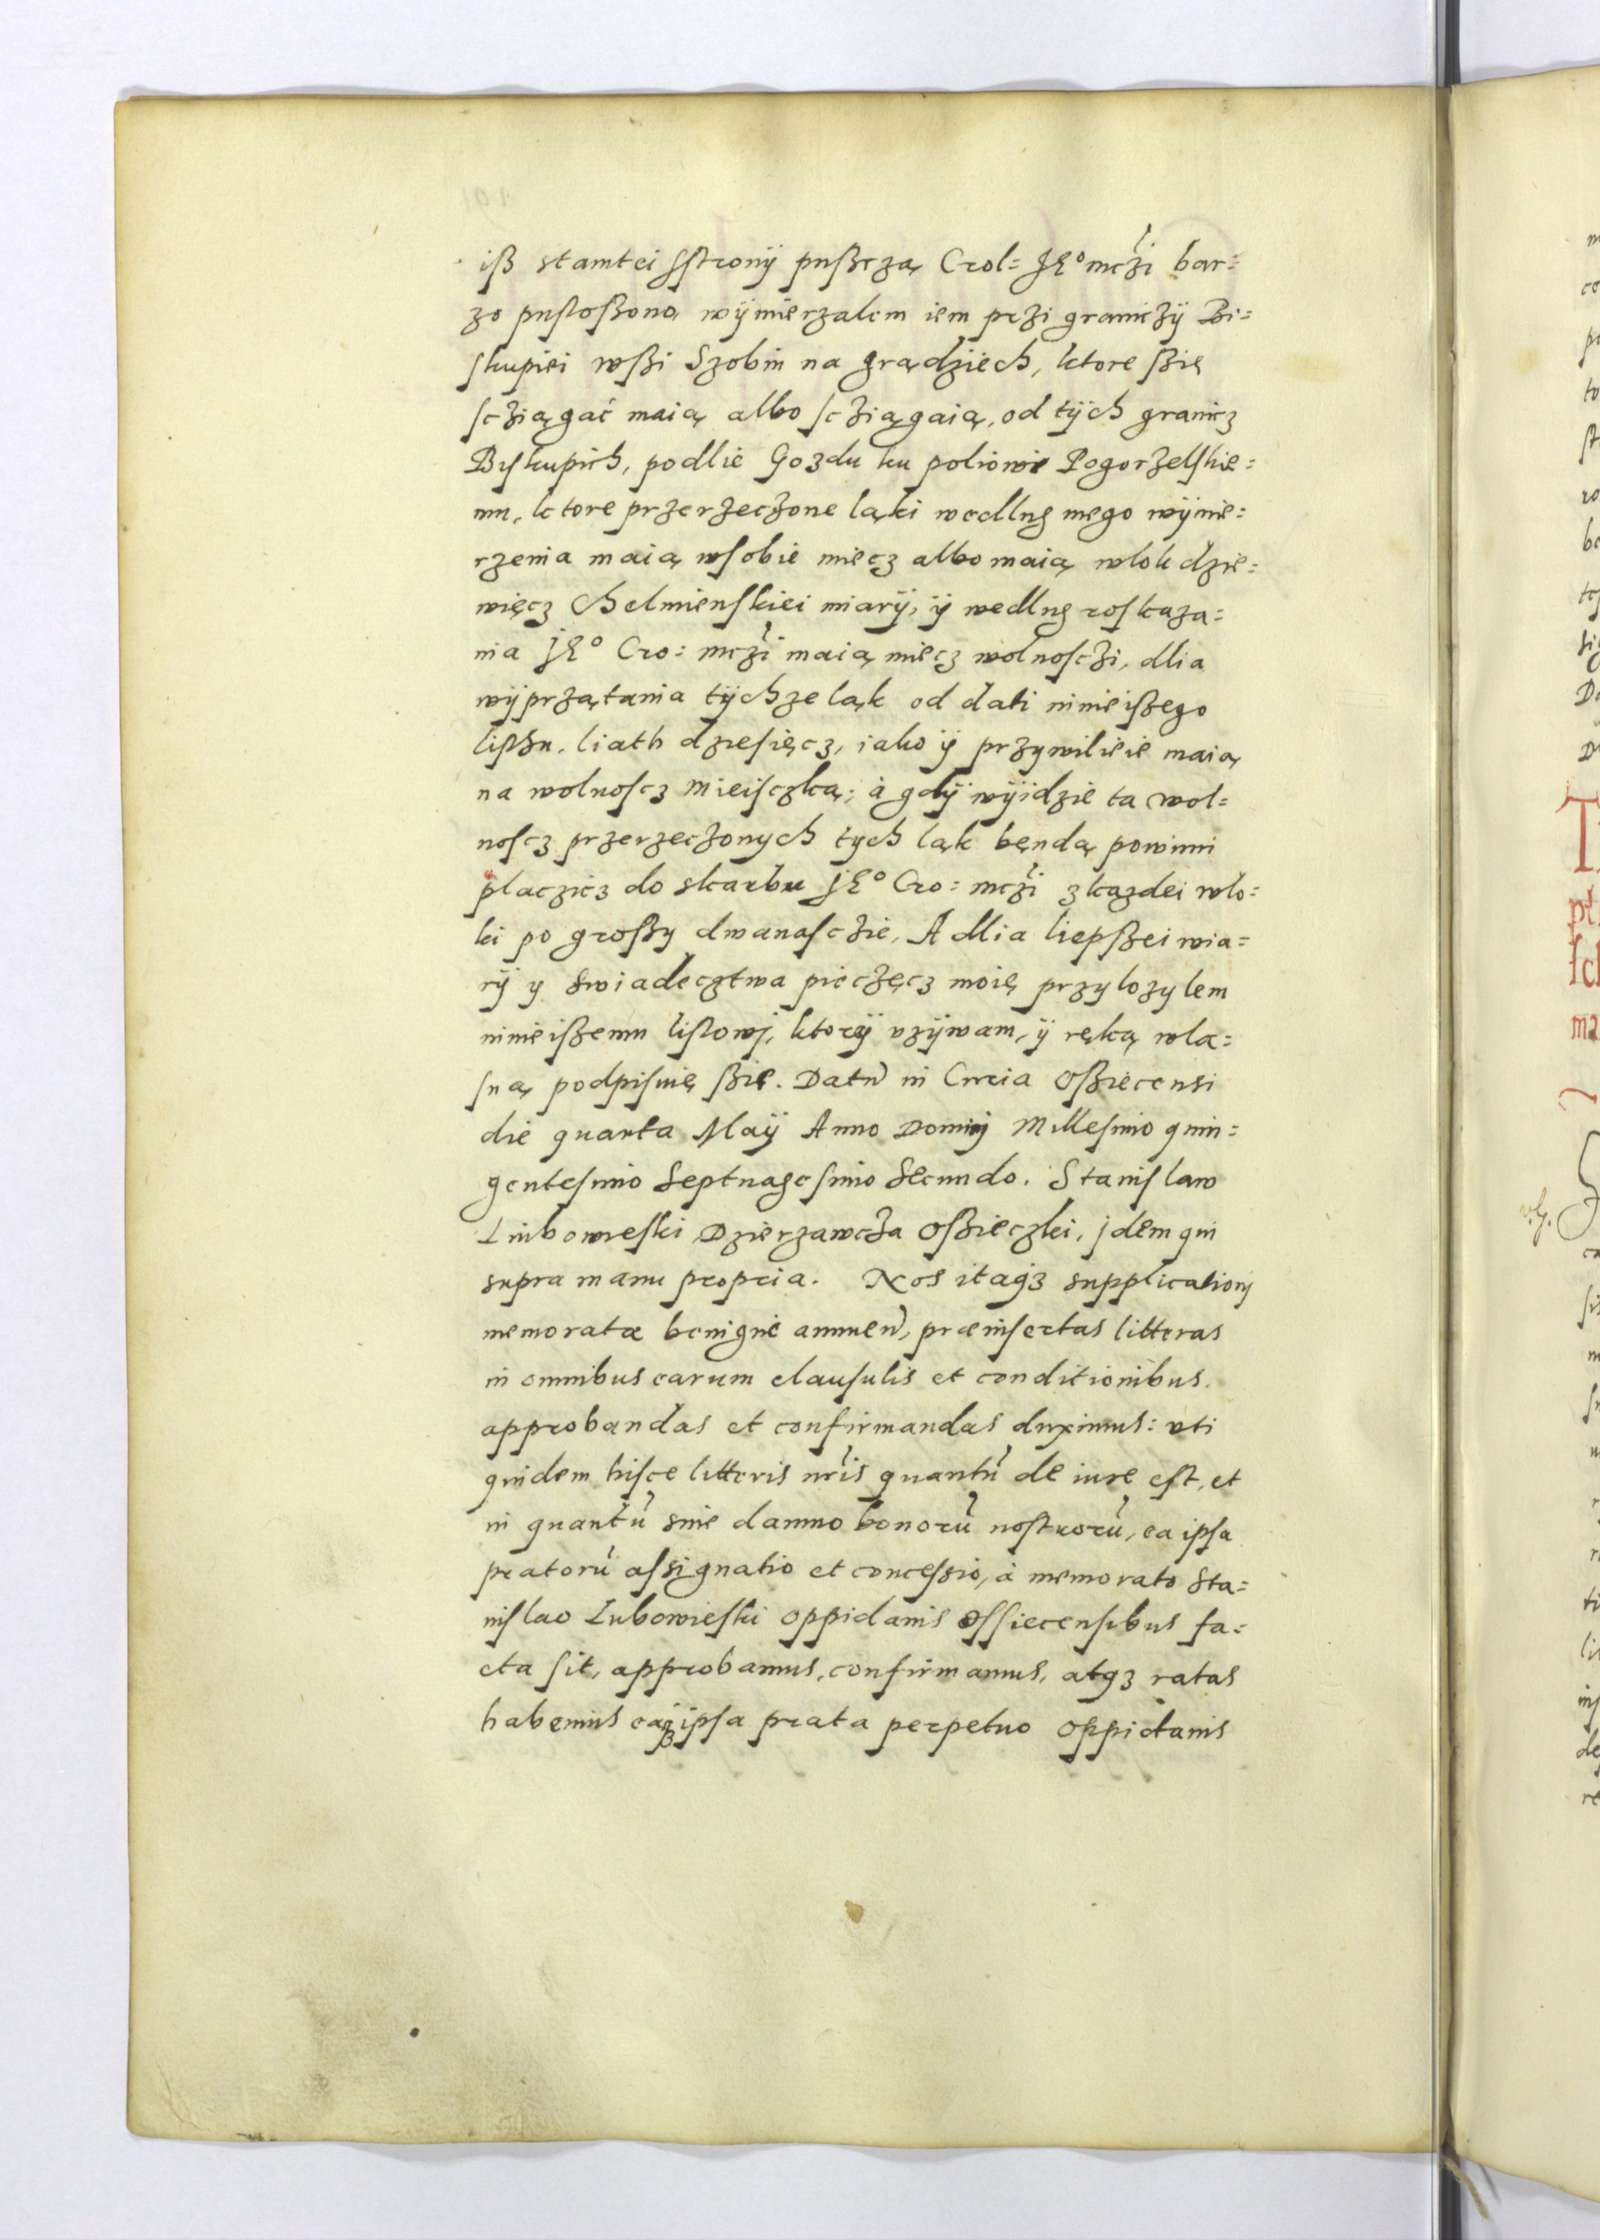 iß stamtei ſſtronÿ pußczą Crol= JE° mczi bar=
zo pustoßono, wÿmierzalem iem przi graniczÿ Bi=
skupiei wßi Szobin na grądziech, ktore ßię
ſcziągać maią albo ſcziągaią, od tÿch granicz
Biskupich, podlie Gozdu ku poliowi Pogorzelſkie=
mu, ktore przerzeczone ląki wedlug mego wÿmie=
rzenia maią wſobie miecz albo maią wlok dzie=
więcz Chelmienſkiei miarÿ, ÿ wedlug roſkaza=
nia JE° Cro= mczi maią miecz wolnoſczi, dlia
wÿprzątania tÿchze ląk od dati ninieiſzego
liſtu, liath dzieſięcz, iako ÿ przywilieie maią
na wolnoſcz mieiſczką; à gdÿ wÿidzie ta wol=
noſcz przerzeczonych tych ląk bęndą powinni
placzicz do skarbu JE° Cro= mczi z kazdei wlo=
ki po großy dwanaſczie, A dlia liepßei wia=
rÿ y Swiadecztwa pieczęcz moię przylozylem
ninieiſzemu liſtowj, ktorÿ vzÿwam, ÿ ręką wla=
ſną podpiſuię ßię. Datū in Curia Oßiecensi
die quarta Maÿ Anno Dominj Milleſimo quin=
genteſimo Septuageſimo Secundo. Staniſlaw
Liubowieſki Dzierzawcza Oßieczki, jdem qui
supra manu propria. Nos itaqз supplicationj
memoratæ benigne annuen̄, præinſertas litteras
in omnibus earum clauſulis et conditionibus
approbandas et confirmandas duximus: uti
quidem hiſce litteris nr̄is quantū de iure eſt, et
in quantū sine damno bonorū nostrorū, ea ipſa
pratorū aſſignatio et conceſſio, à memorato Sta=
niſlao Lubowieſki oppidanis Oſſiecenſibus fa=
cta ſit, approbamus, confirmamus, atqз ratas
habemus eaqз ipſa prata perpetuo oppidanis